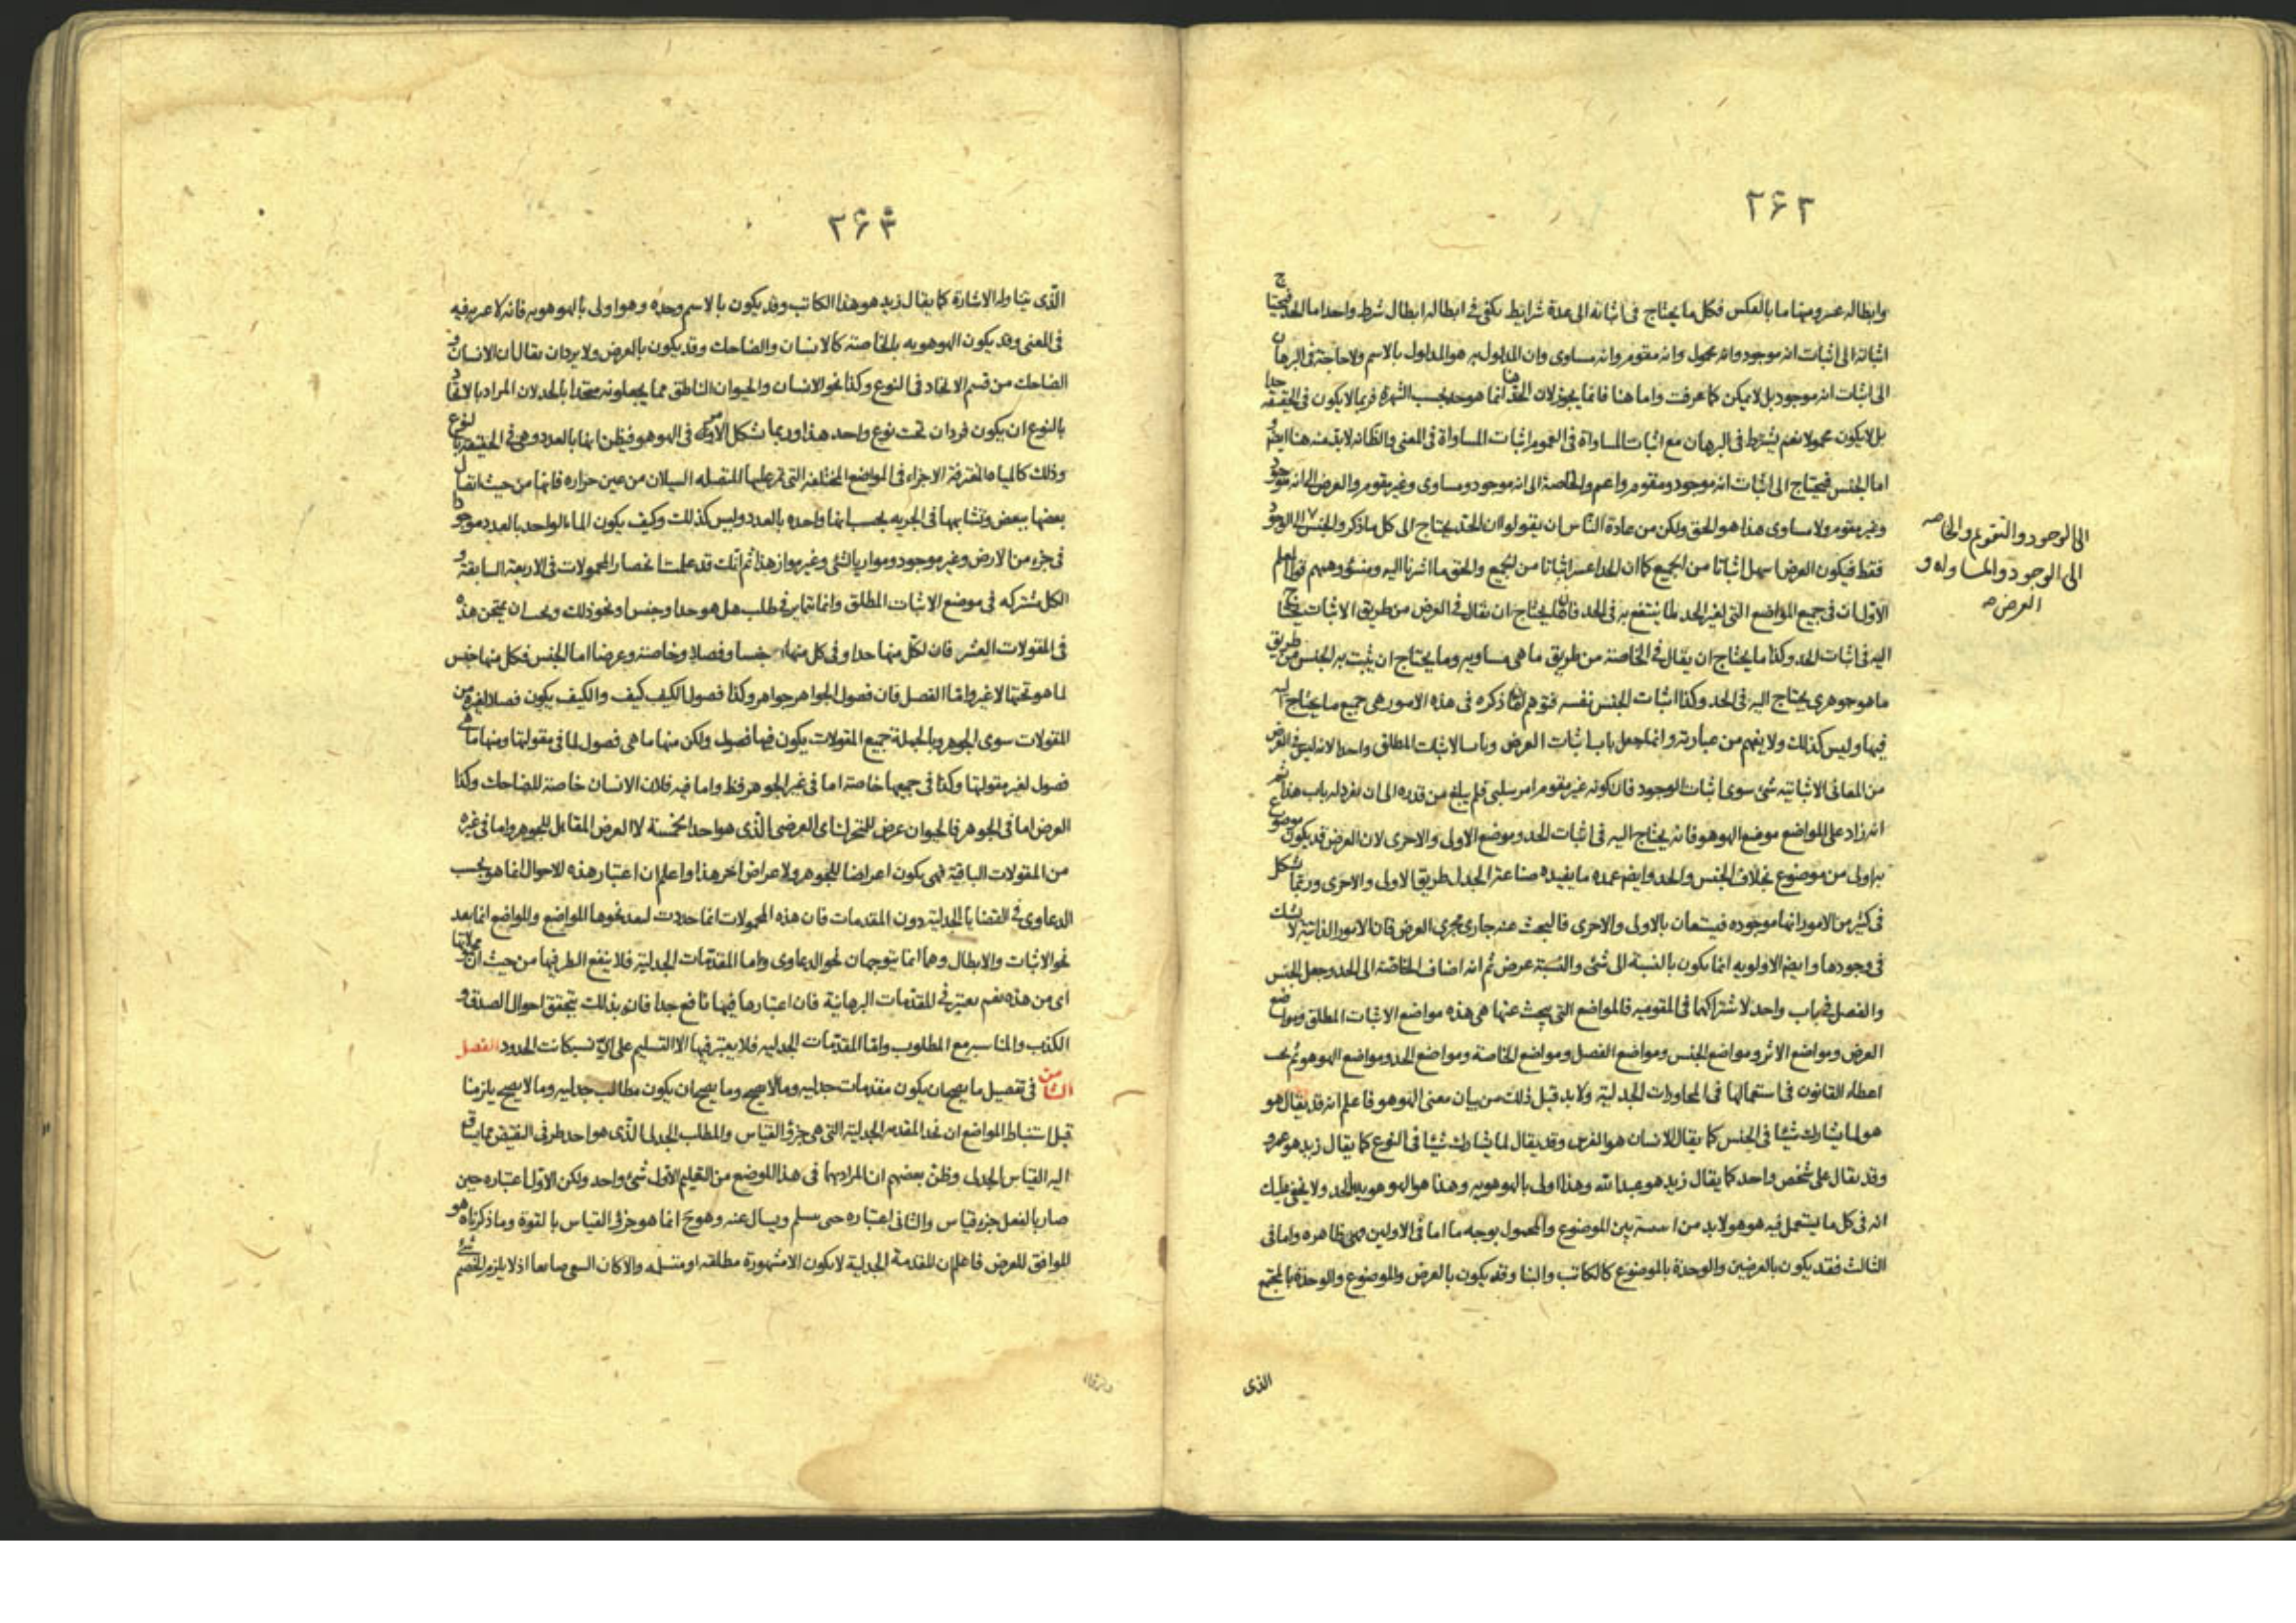 ۲۶۲
وابطاله عسر ومنها ما بالعكس فكل ما يحتاج فى اثباته الى عدة شرايط يكفى فى ابطاله ابطال شرط واحد اما الحد فيحتاج
اثباته الى اثبات انه موجود وانه محمول وانه مقوم وانه مساوى وان المدلول به هو المدلول بالاسم ولا حاجة فى البرهان
الى اثبات انه موجود بل لا يمكن كما عرفت واما هنا فانما يجوز لان الحد هنا انما هو حد بحسب الشهرة فربما لا يكون فى الحقيقة حدا
بل لا يكون محمولا نعم يشترط فى البرهان مع اثبات المساواة فى العموم اثبات المساواة فى المعنى والظ انه لا بد منه هنا ايضا و
اما الجنس فيحتاج الى اثبات انه موجود ومقوم واعم والخاصة الى انه موجود ومساوى وغير مقوم والعرض الى انه موجود
وغير مقوم ولا مساوى هذا هو الحق ولكن من عادة الناس ان يقولوا ان الحد يحتاج الى كل ما ذكر والجنس الى الوجود
الى الوجود والتقوم والخاصه
الى الوجود والمساواه و
العرض صه
فقط فيكون العرض اسهل اثباتا من الجميع كما ان الحد اعسر اثباتا من الجميع والحق ما اشرنا اليه ومنشؤ وهمهم قول المعلم
الاول ان فى جميع المواضع التى لغير الحد لما ينتفع به فى الحد فان ما يحتاج ان يقال فى العرض من طريق الاثبات يحتاج
اليه فى اثبات الحد وكذا ما يحتاج ان يقال فى الخاصة من طريق ما هى مساويه وما يحتاج ان يثبت به الجنس من طريق
ما هو جوهرى يحتاج اليه فى الحد وكذا اثبات الجنس نفسه فتوهم ان ما ذكره فى هذه الامور هى جميع ما يحتاج اليه
فيها وليس كذلك ولا يفهم من عبارته وانما جعل باب اثبات العرض وباب الاثبات المطلق واحدا لانه ليس فى العرض
من المعانى الاثباتية شئ سوى اثبات الوجود فان كونه غير مقوم امر سلبى فلم يبلغ من قدره الى ان يفرد له باب هذا ثم
انه زاد على المواضع موضع الهوهو فانه يحتاج اليه فى اثبات الحد وموضع الاولى والاحرى لان العرض قد يكون موضوع
به اولى من موضوع بخلاف الجنس والحد وايضم عمده ما يفيده صناعة الجدل طريق الاولى والاحرى وربما يشكل
فى كثير من الامور انها موجوده فيستعان بالاولى والاحرى فالبحث عنه جارى مجرى العرض فان الامور الذاتية لا يشك
فى وجودها وايضم الاولويه انما يكون بالنسبة الى شئ والنسبة عرض ثم انه اضاف الخاصة الى الحد وجعل الجنس
والفصل فى باب واحد لاشتراكهما فى المقوميه فالمواضع التى يبحث عنها هى هذه مواضع الاثبات المطلق ومواضع
العرض ومواضع الاثر ومواضع الجنس ومواضع الفصل ومواضع الخاصة ومواضع الحد ومواضع الهوهو ثم يجب
اعطاء القانون فى استعمالها فى المحاورات الجدلية ولا بد قبل ذلك من بيان معنى الهوهو فاعلم انه قد يقال هو
هو لما يشارك شيئا فى الجنس كما يقال للانسان هو الفرس وقد يقال لما يشارك شيئا فى النوع كما يقال زيد هو عمرو
وقد يقال على شخص واحد كما يقال زيد هو عبد الله وهذا اولى بالهوهويه وهذا هو الهوهويه بالحد ولا يخفى عليك
انه فى كل ما يستعمل فيه هو هو لا بد من بين الموضوع والمحمول بوجه ما اما فى الاولين فهى ظاهره واما فى
الثالث فقد يكون بالعرضين والوحدة بالموضوع كالكاتب والبنا وقد يكون بالعرض والموضوع والوحدة بالمجتمع
الذى
۲۶۳
الذى يتناوله الاشارة كما يقال زيد هو هذا الكاتب وقد يكون بالاسم وحده وهو اولى بالهوهويه فانه لا غيريه فيه
فى المعنى وقد يكون الهوهويه بالخاصة كالانسان والضاحك وقد يكون بالعرض ولا يرد ان يقال ان الانسان و
الضاحك من قسم الاتحاد فى النوع وكذا نحو الانسان والحيوان الناطق مما يجعلونه متحدا بالحد لان المراد بالاتحاد
بالنوع ان يكون فردان تحت نوع واحد هذا وربما يشكل الامر فى الهوهو فيظن انها بالعدد وهى فى الحقيقة بالنوع
وذلك كالمياه المفترقة الاجزاء فى المواضع المختلفة التى تمر عليها المنفصله السيلان من عين حراره فانها من حيث اتصال
بعضها ببعض وتشابهها فى الجريه يحسب انها واحده بالعدد وليس كذلك وكيف يكون الماء الواحد بالعدد موجودا
فى جزء من الارض وغير موجود ومواز يا لشئ وغير مواز هذا ثم انك قد علمت انحصار المحمولات فى الاربعة السابقة و
الكل مشتركه فى موضع الاثبات المطلق وانما تتمايز فى طلب هل هو حد او جنس او نحو ذلك ويجب ان يمتحن هذه
فى المقولات العشر فان لكل منها حدا وفى كل منها جنسا وفصلا وخاصة وعرضا اما الجنس فكل منها جنس
لما هو تحتها لا غير واما الفصل فان فصول الجواهر جواهر وكذا فصول الكيف كيف والكيف يكون فصلا لغيره من
المقولات سوى الجوهر وبالجملة جميع المقولات يكون فيها فصول ولكن منها ما هى فصول لما فى مقولتها ومنها ما هى
فصول لغير مقولتها وكذا فى جميعها خاصة اما فى غير الجوهر فظ واما فيه فلان الانسان خاصة للضاحك وكذا
العرض اما فى الجوهر فالحيوان عرض للمتحرك اى العرضى الذى هو احد الخمسة لا العرض المقابل للجوهر واما فى غيره
من المقولات الباقية فهى يكون اعراضا للجوهر ولاعراض اخر هذا واعلم ان اعتبار هذه الاحوال انما هو بحسب
الدعاوى فى القضايا الجدلية دون المقدمات فان هذه المحمولات انما حددت لمد نحوها المواضع والمواضع انما يعد
نحو الاثبات والابطال وهما انما يتوجهان نحو الدعاوى واما المقدمات الجدلية فلا ينفع النظر فيها من حيث ان محمولاتها
اى من هذه نعم يعتبر فى المقدمات البرهانية فان اعتبارها فيها نافع جدا فان بذلك يتحقق احوال الصدق و
الكذب والمناسبه مع المطلوب واما المقدمات الجدليه فلا يعتبر فيها الا التسليم على اى نسبة كانت الحدود الفصل
الثامن فى تفصيل ما يصح ان يكون مقدمات جدليه وما لا يصح وما يصح ان يكون مطالب جدليه وما لا يصح يلزمنا
قبل استنباط المواضع ان نحد المقدمه الجدلية التى هى جزؤ القياس والمطلب الجدلى الذى هو احد طرفى النقيض مما يساق
اليه القياس الجدلى وظن بعضهم ان المراد بهما فى هذا الموضع من التعليم الاول شئ واحد ولكن الاول اعتباره حين
صار بالفعل جزء قياس والثانى اعتباره حين يسلم ويسال عنه وهو ح انما هو جزؤ القياس بالقوة وما ذكرناه هو
الموافق للغرض فاعلم ان المقدمة الجدلية لا يكون الا مشهورة مطلقه او متسلمه والا كان السعى ضايعا اذ لا يلزم الخصم شئ